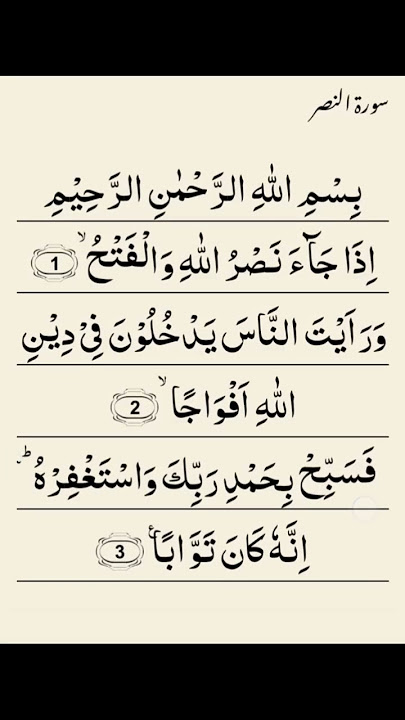 سورة النصر
بِسْمِ اللهِ الرَّحْمٰنِ الرَّحِيْمِ
اِذَا جَآءَ نَصْرُ اللهِ وَالْفَتْحُ ۙ 1
وَرَاَيْتَ النَّاسَ يَدْخُلُوْنَ فِيْ دِيْنِ
اللهِ اَفْوَاجًا ۙ 2
فَسَبِّحْ بِحَمْدِ رَبِّكَ وَاسْتَغْفِرْهُ ؕ
اِنَّهٗ كَانَ تَوَّابًا ع 3